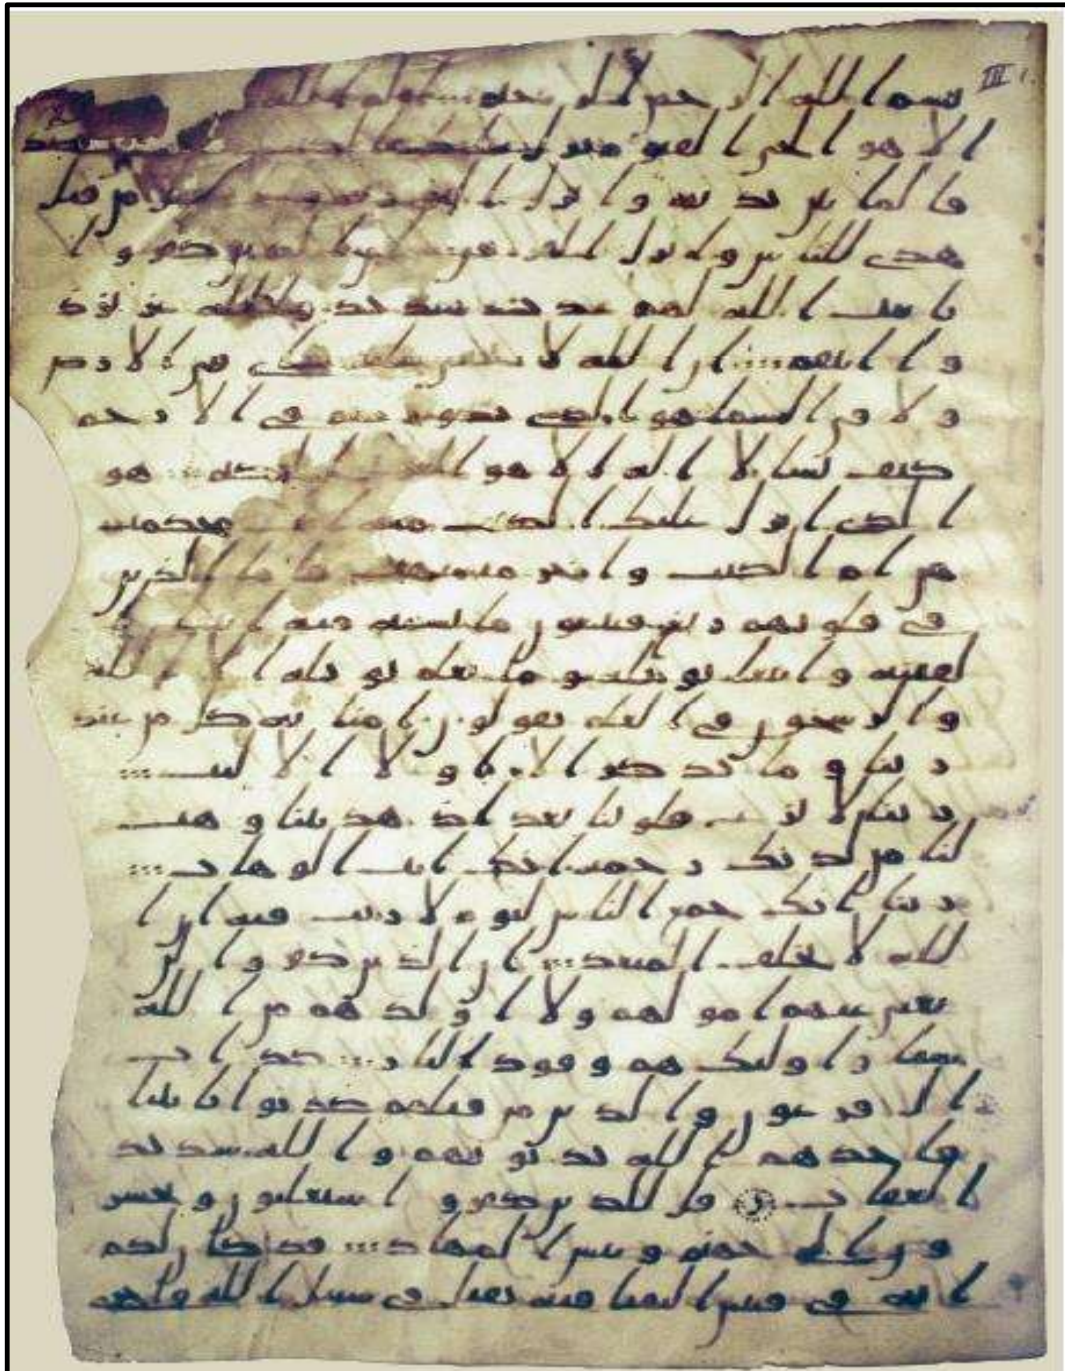 III 1.
بسم الله الرحمن الرحيم الم الله لا اله
الا هو الحي القيوم نزل عليك الكتب بالحق مصد
قا لما بين يديه وانزل التورية والانجيل من قبل
هدى للناس وانزل الفرقن ان الذين كفروا
بايت الله لهم عذب شديد والله عزيز ذو
ا انتقم ان الله لا يخفى عليه شي في الارض
ولا في السما هو الذي يصوركم في الارحم
كيف يشا لا اله الا هو العزيز الحكيم هو
الذي انزل عليك الكتب منه ايت محكمت
هن ام الكتب واخر متشبهت فاما الذين
في قلوبهم زيغ فيتبعون ما تشبه منه ابتغا
لفتنة وابتغا تويله وما يعلم تويله الا الله
والرسخون في العلم يقولون امنا به كل من عند
ربنا وما يذكر الا اولوا الالبب
ربنا لا تزغ قلوبنا بعد اذ هديتنا وهب
لنا من لدنك رحمة انك انت الوهاب
ربنا انك جمع الناس ليوم لا ريب فيه ان ا
لله لا يخلف الميعد ان الذين كفروا لن
تغني عنهم امولهم ولا اولدهم من الله
شيا واوليك هم وقود النار كداب
ال فرعون والذين من قبلهم كذبوا بايتنا
فاخذهم الله بذنوبهم والله شديد
العقاب قل للذين كفروا ستغلبون وتحشر
ون الى جهنم وبيس المهاد قد كان لكم
اية في فيتين التقتا فية تقتل في سبيل الله واخرى